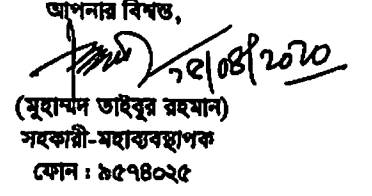 আপনার বিশ্বস্ত,
২৫/০৪/২০২০
(মুহাম্মদ তাইবুর রহমান)
সহকারী-মহাব্যবস্থাপক
ফোন : ৯৫৭৪০২৫